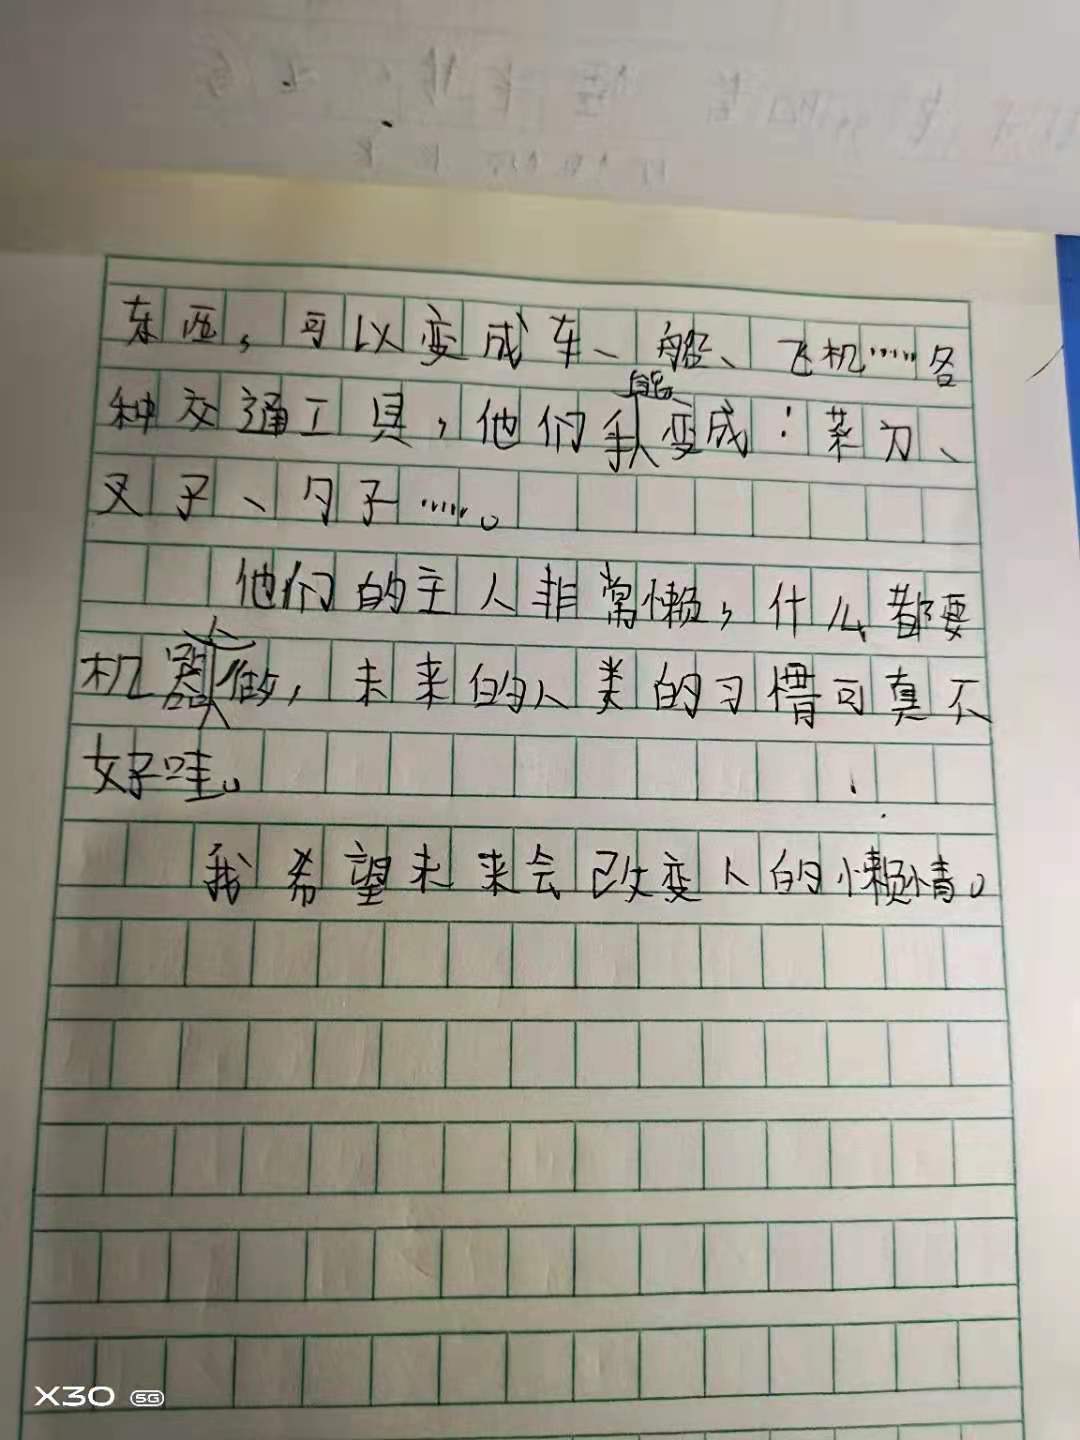 东西，可以变成车、船、飞机……各
种交通工具，他们能变成：菜刀、
叉子、勺子……。
他们的主人非常懒，什么都要
机器人做，未来的人类的习惯可真不
好哇。
我希望未来会改变人的懒惰。
X30 5G